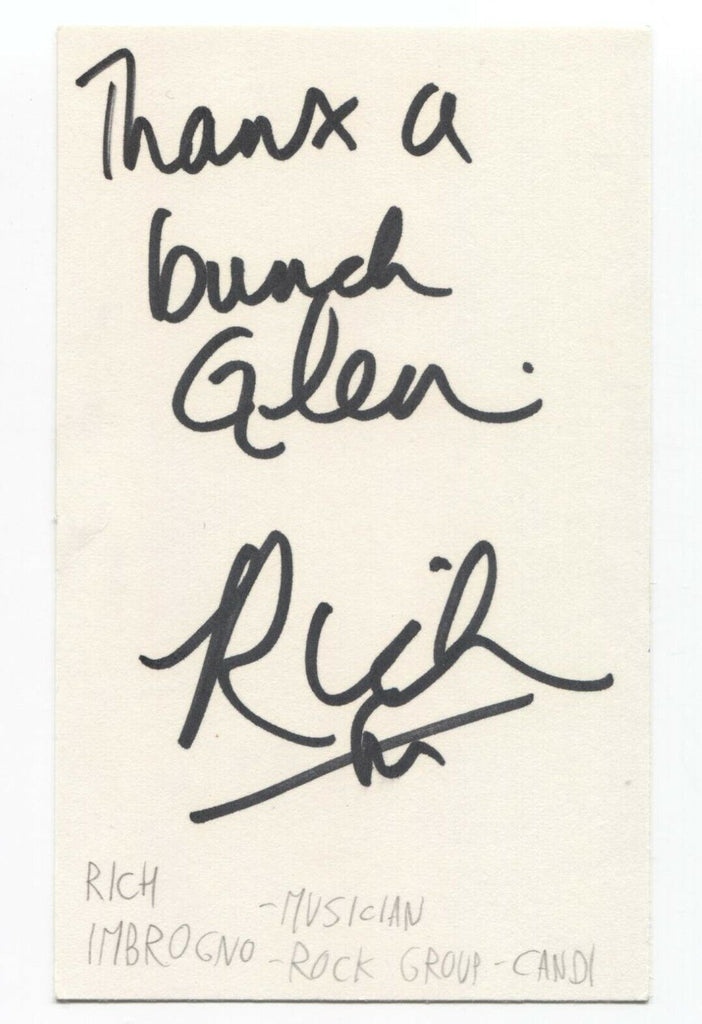 Thanx a
bunch
Glen.
Rich
RICH
IMBROGNO
-MUSICIAN
-ROCK GROUP - CANDI